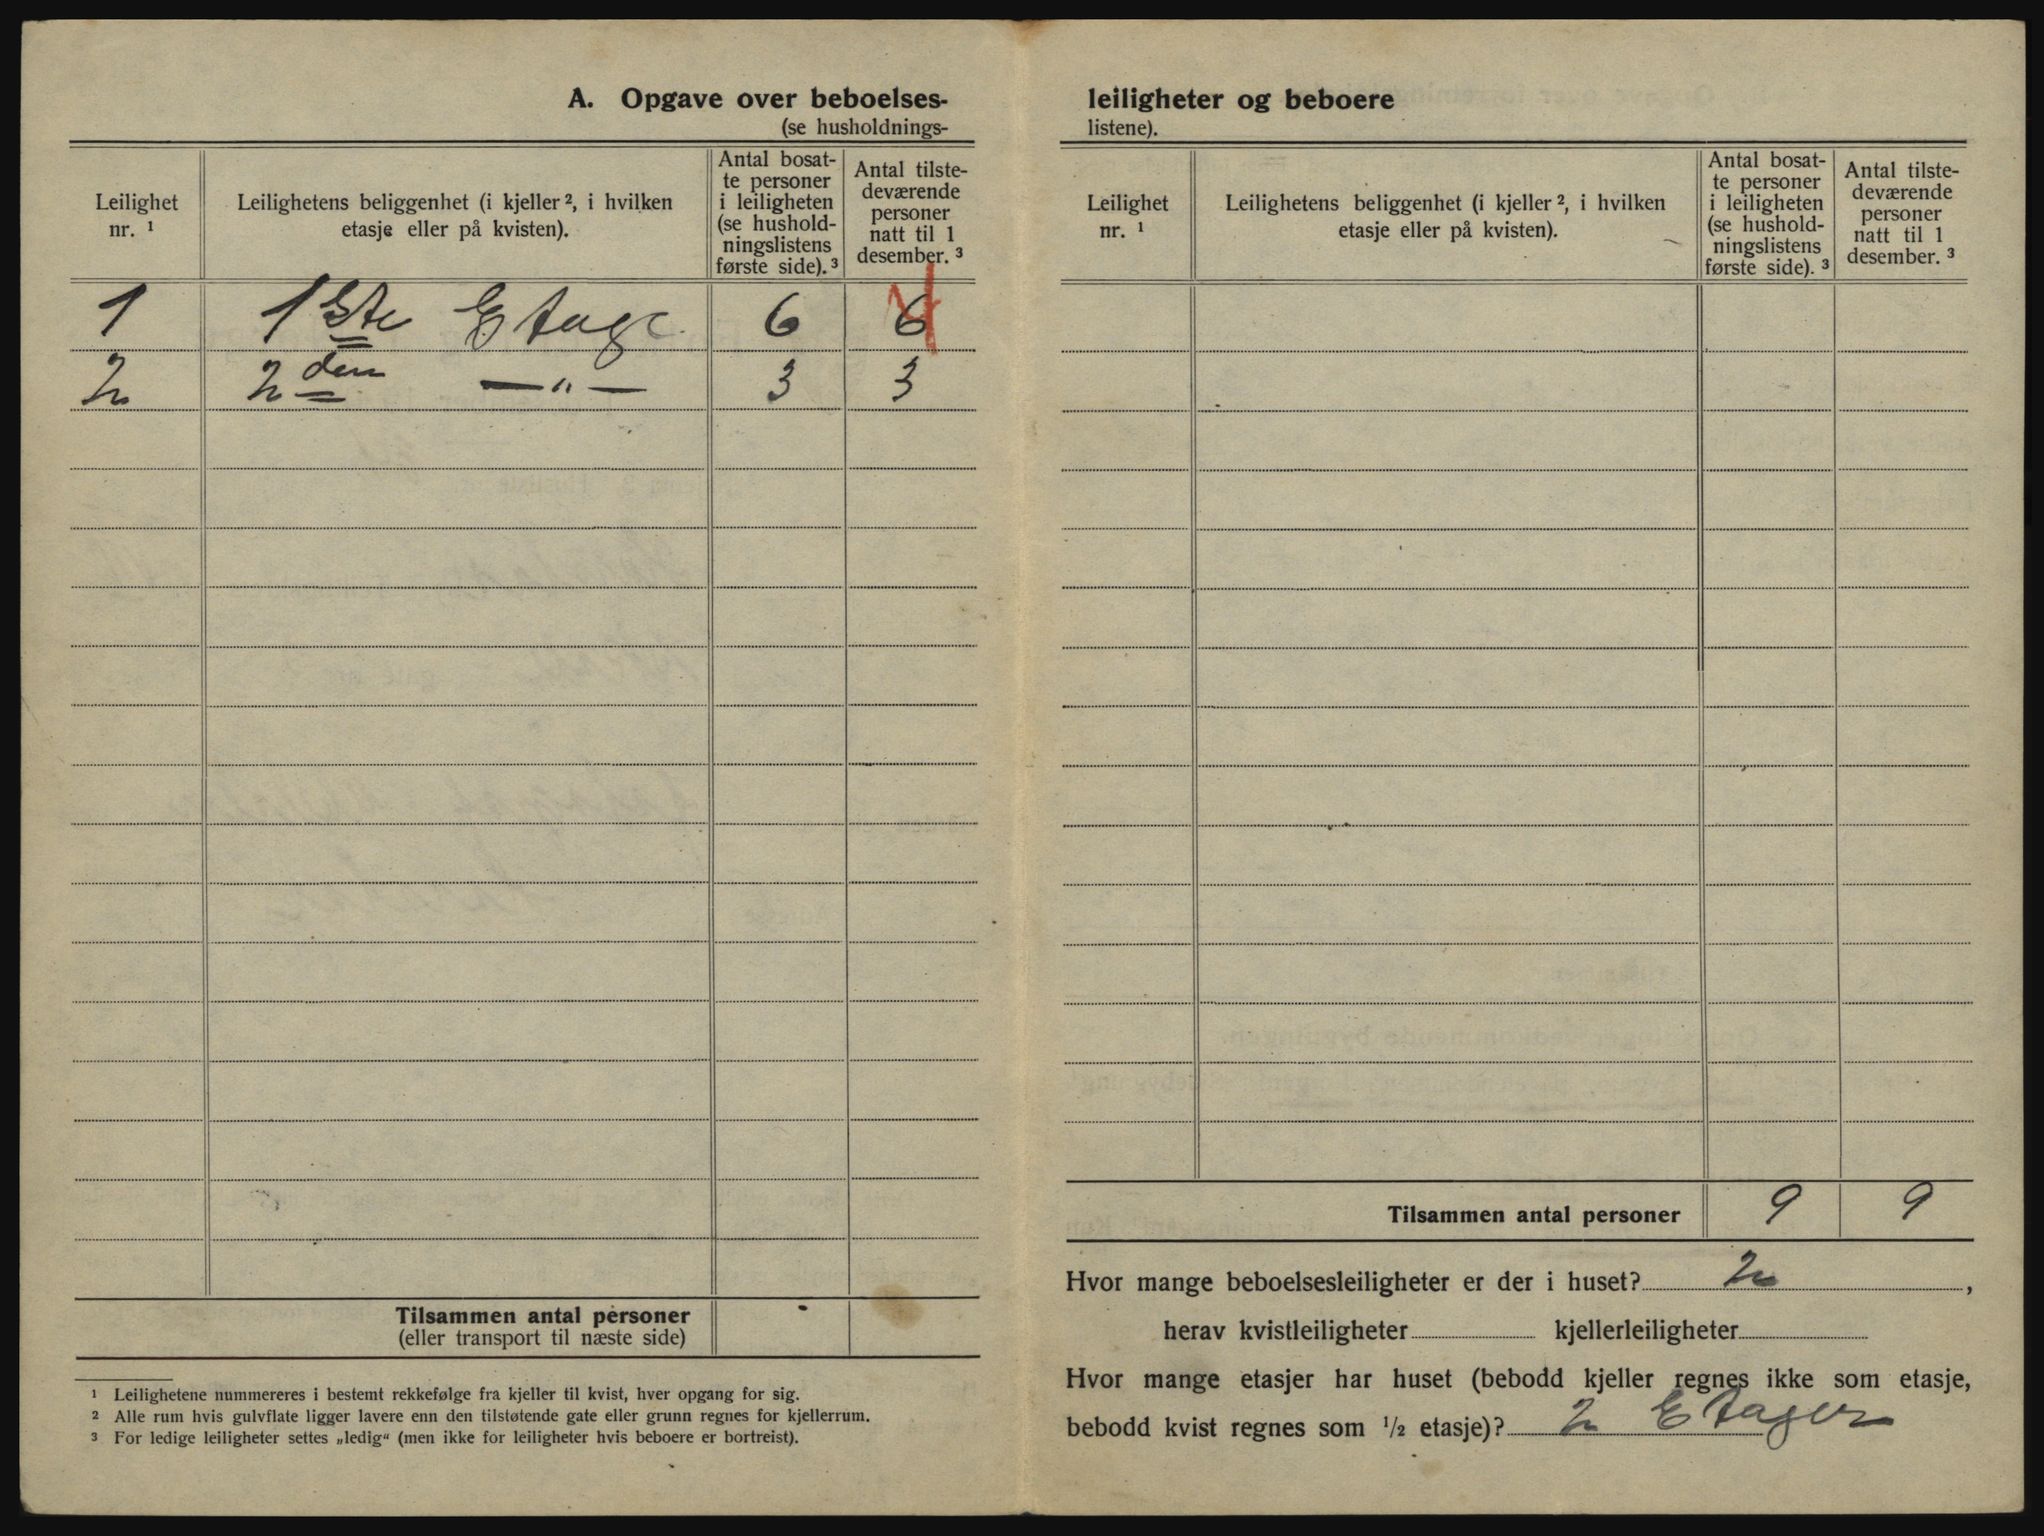 A. Opgave over beboelses-
(se husholdnings-
Leilighet
nr. ¹
Leilighetens beliggenhet (i kjeller ², i hvilken
etasje eller på kvisten).
Antal bosat-
te personer
i leiligheten
(se hushold-
ningslistens
første side). ³
Antal tilste-
deværende
personer
natt til 1
desember. ³
1 1ste Etage 6 6 4
2 2den — " — 3 3
Tilsammen antal personer
(eller transport til næste side)
¹ Leilighetene nummereres i bestemt rekkefølge fra kjeller til kvist, hver opgang for sig.
² Alle rum hvis gulvflate ligger lavere enn den tilstøtende gate eller grunn regnes for kjellerrum.
³ For ledige leiligheter settes „ledig“ (men ikke for leiligheter hvis beboere er bortreist).
leiligheter og beboere
listene).
Leilighet
nr. ¹
Leilighetens beliggenhet (i kjeller ², i hvilken
etasje eller på kvisten).
Antal bosat-
te personer
i leiligheten
(se hushold-
ningslistens
første side). ³
Antal tilste-
deværende
personer
natt til 1
desember. ³
Tilsammen antal personer 9 9
Hvor mange beboelsesleiligheter er der i huset? 2,
herav kvistleiligheter kjellerleiligheter
Hvor mange etasjer har huset (bebodd kjeller regnes ikke som etasje,
bebodd kvist regnes som ½ etasje)? 2 Etager